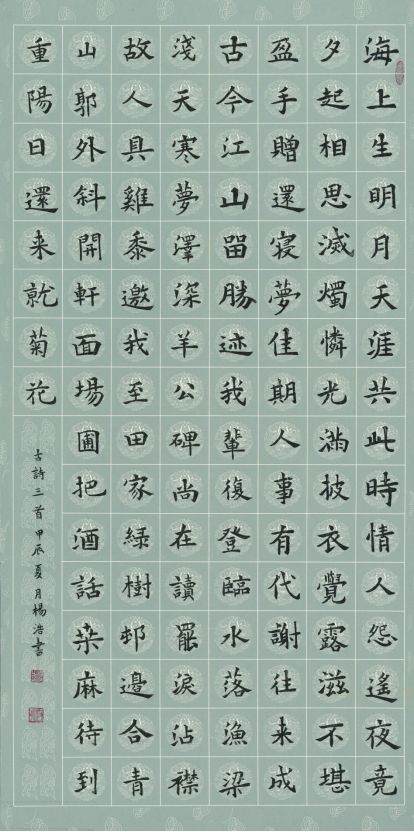 海上生明月天涯共此時情人怨遙夜竟
夕起相思滅燭憐光滿披衣覺露滋不堪
盈手贈還寢夢佳期人事有代謝往来成
古今江山留勝迹我輩復登臨水落漁梁
淺天寒夢澤深羊公碑尚在讀罷淚沾襟
故人具雞黍邀我至田家綠樹邨邊合青
山郭外斜開軒面場圃把酒話桑麻待到
重陽日還来就菊花
古詩三首甲辰夏月楊浩書